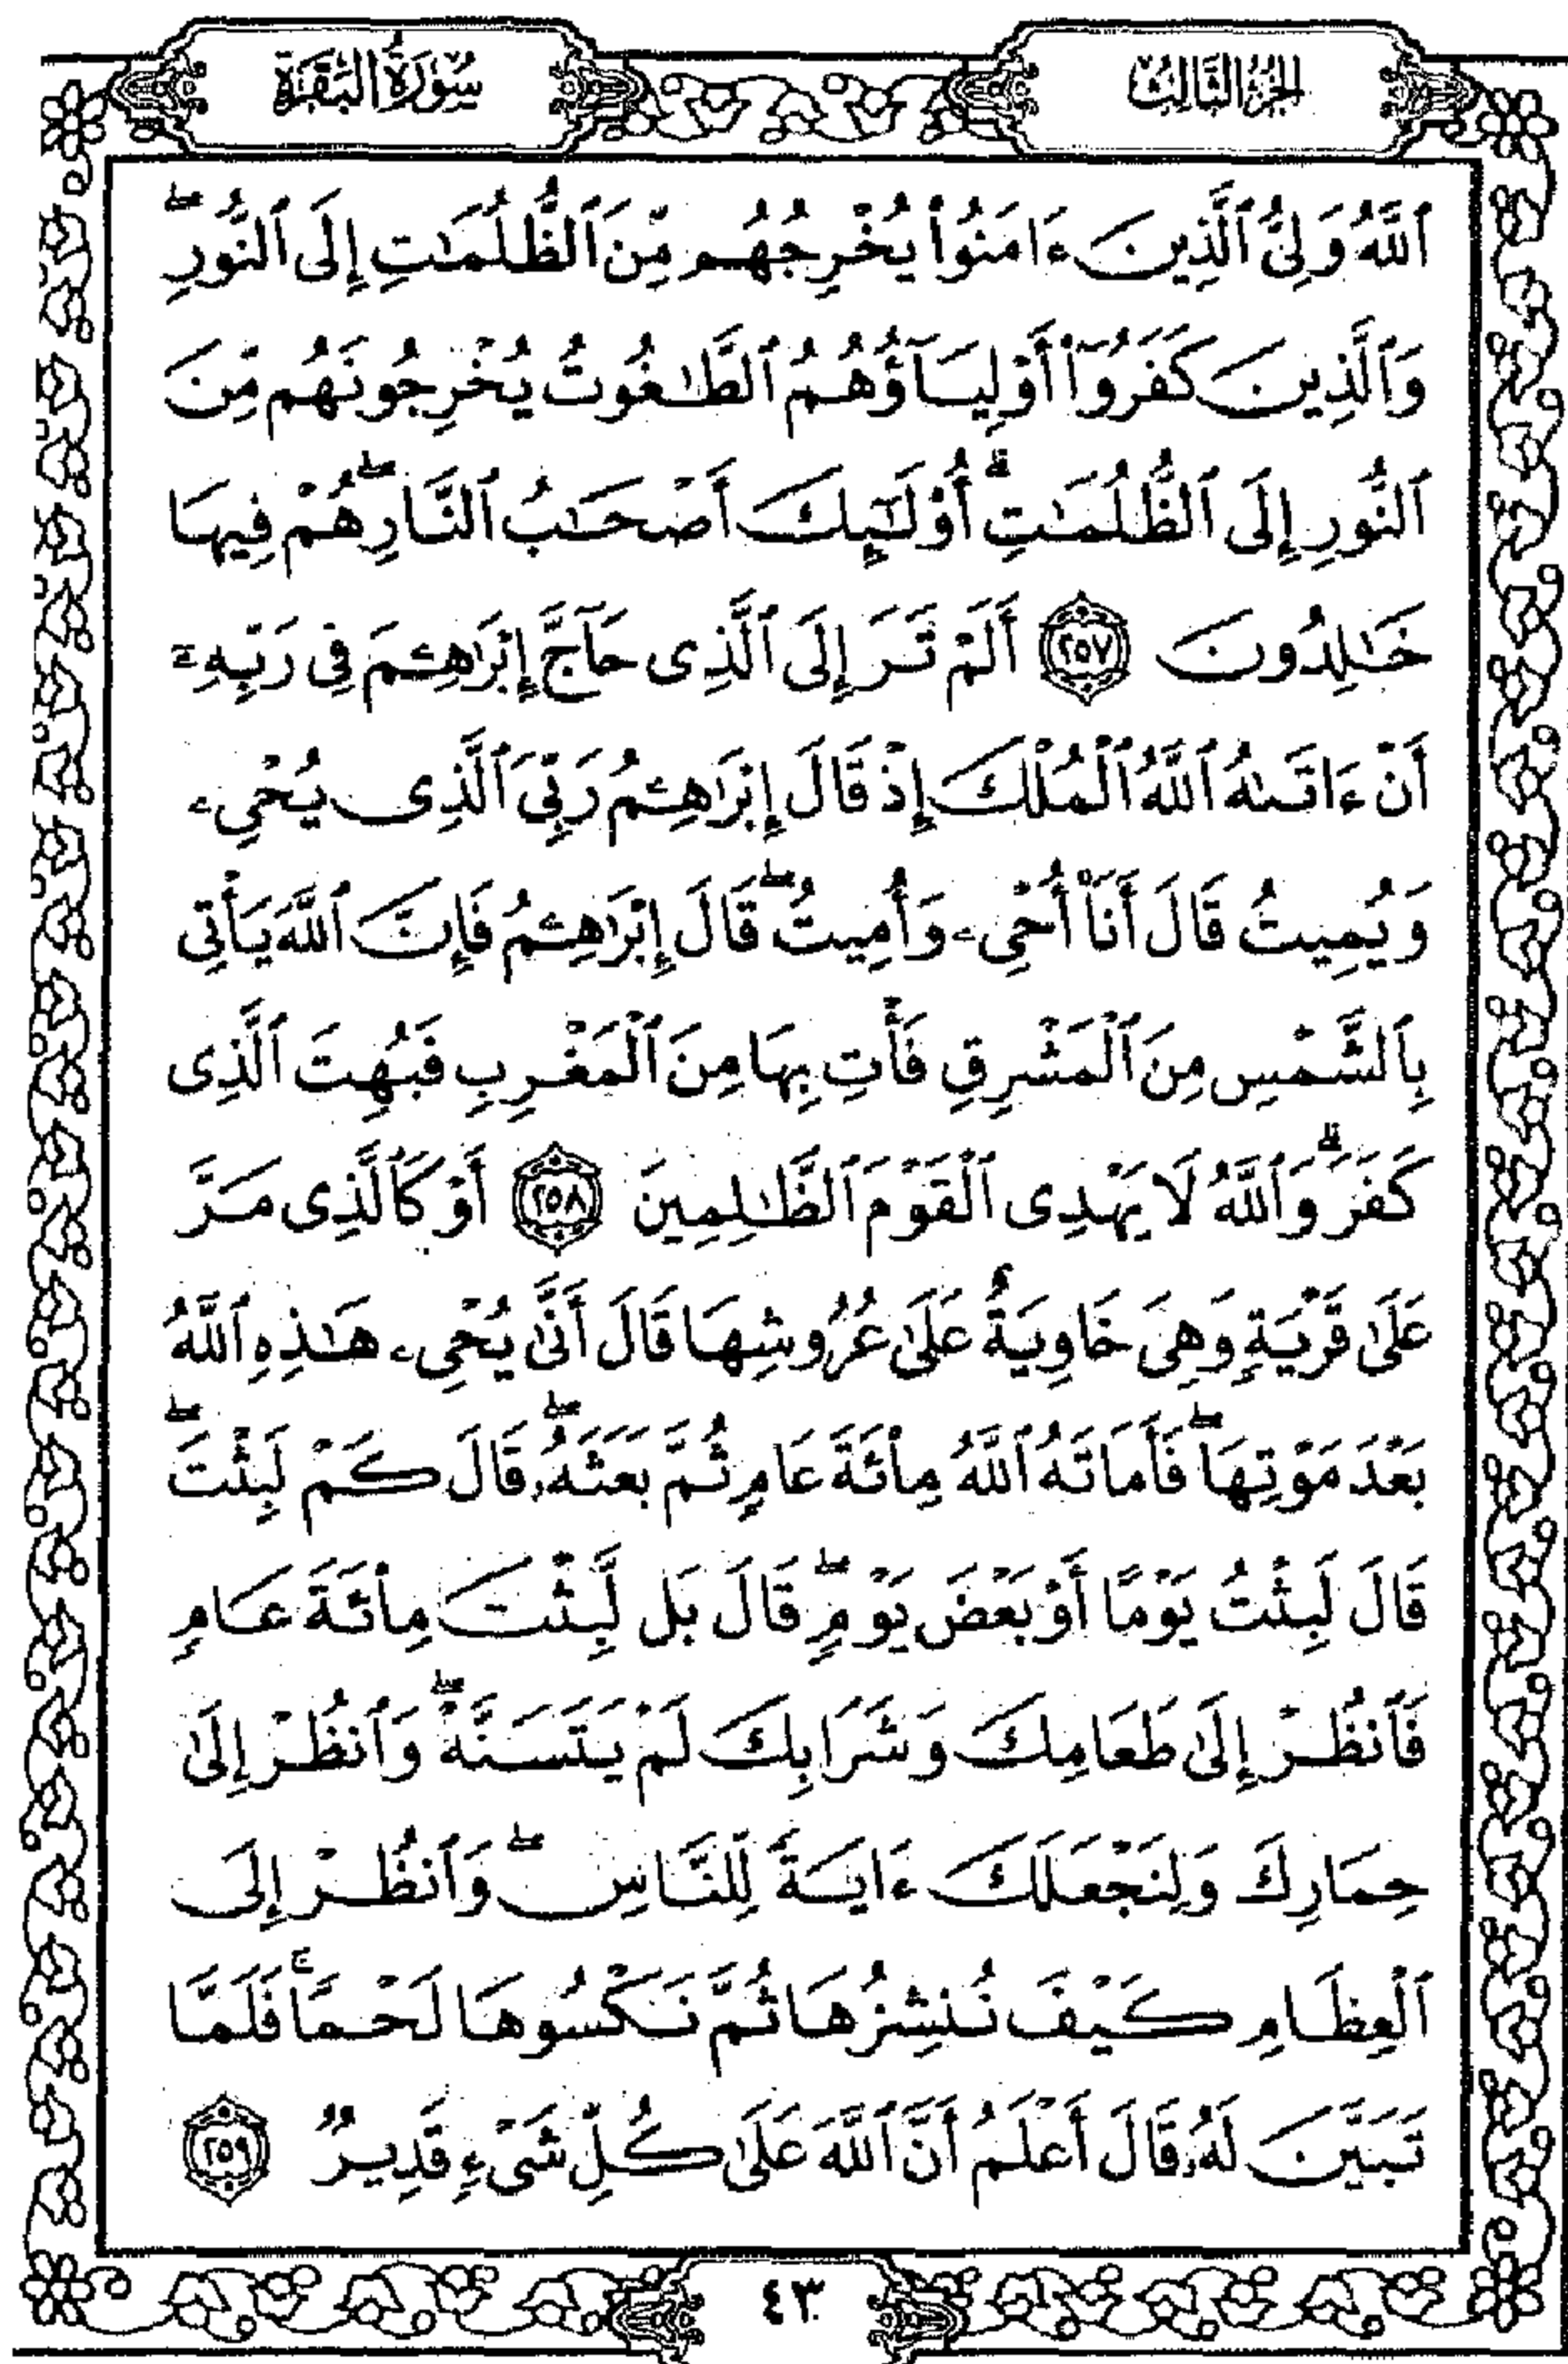 الجزء الثالث
سورة البقرة
ٱللَّهُ وَلِىُّ ٱلَّذِينَ ءَامَنُوا۟ يُخْرِجُهُم مِّنَ ٱلظُّلُمَـٰتِ إِلَى ٱلنُّورِ ۖ
وَٱلَّذِينَ كَفَرُوٓا۟ أَوْلِيَآؤُهُمُ ٱلطَّـٰغُوتُ يُخْرِجُونَهُم مِّنَ
ٱلنُّورِ إِلَى ٱلظُّلُمَـٰتِ ۗ أُو۟لَـٰٓئِكَ أَصْحَـٰبُ ٱلنَّارِ ۖ هُمْ فِيهَا
خَـٰلِدُونَ ٢٥٧ أَلَمْ تَرَ إِلَى ٱلَّذِى حَآجَّ إِبْرَٰهِـۧمَ فِى رَبِّهِۦٓ
أَنْ ءَاتَىٰهُ ٱللَّهُ ٱلْمُلْكَ إِذْ قَالَ إِبْرَٰهِـۧمُ رَبِّىَ ٱلَّذِى يُحْىِۦ
وَيُمِيتُ قَالَ أَنَا۠ أُحْىِۦ وَأُمِيتُ ۖ قَالَ إِبْرَٰهِـۧمُ فَإِنَّ ٱللَّهَ يَأْتِى
بِٱلشَّمْسِ مِنَ ٱلْمَشْرِقِ فَأْتِ بِهَا مِنَ ٱلْمَغْرِبِ فَبُهِتَ ٱلَّذِى
كَفَرَ ۗ وَٱللَّهُ لَا يَهْدِى ٱلْقَوْمَ ٱلظَّـٰلِمِينَ ٢٥٨ أَوْ كَٱلَّذِى مَرَّ
عَلَىٰ قَرْيَةٍ وَهِىَ خَاوِيَةٌ عَلَىٰ عُرُوشِهَا قَالَ أَنَّىٰ يُحْىِۦ هَـٰذِهِ ٱللَّهُ
بَعْدَ مَوْتِهَا ۖ فَأَمَاتَهُ ٱللَّهُ مِا۟ئَةَ عَامٍ ثُمَّ بَعَثَهُۥ ۖ قَالَ كَمْ لَبِثْتَ ۖ
قَالَ لَبِثْتُ يَوْمًا أَوْ بَعْضَ يَوْمٍ ۖ قَالَ بَل لَّبِثْتَ مِا۟ئَةَ عَامٍ
فَٱنظُرْ إِلَىٰ طَعَامِكَ وَشَرَابِكَ لَمْ يَتَسَنَّهْ ۖ وَٱنظُرْ إِلَىٰ
حِمَارِكَ وَلِنَجْعَلَكَ ءَايَةً لِّلنَّاسِ ۖ وَٱنظُرْ إِلَى
ٱلْعِظَامِ كَيْفَ نُنشِزُهَا ثُمَّ نَكْسُوهَا لَحْمًا ۚ فَلَمَّا
تَبَيَّنَ لَهُۥ قَالَ أَعْلَمُ أَنَّ ٱللَّهَ عَلَىٰ كُلِّ شَىْءٍ قَدِيرٌ ٢٥٩
٤٣